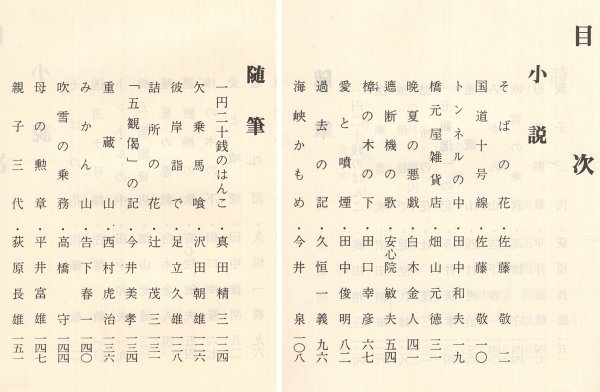 目次
小説
そばの花・佐藤敬 二
国道十号線・佐藤敬 一〇
トンネルの中・田中和夫 一九
橋元屋雑貨店・畑山元徳 三一
晩夏の悪戯・白木金人 四一
遮断機の歌・安心院敏 五四
樟の木の下・田口幸彦 六七
愛と噴煙・田中俊明 八二
過去の記・久恒一義 九六
海峡かもめ・今井泉 一〇八
随筆
一円二十銭のはんこ・真田精三 一二四
欠乗馬喰・沢田朝雄 一二六
彼岸詣で・足立久雄 一二八
詰所の花・辻茂三 一三一
「五観偈」の記・今井美孝 一三四
重蔵山・西村虎治 一三六
みかん山・告春一 一四〇
吹雪の乗務・高橋守 一四四
母の勲章・平井富雄 一四七
親子三代・荻原長雄 一五一